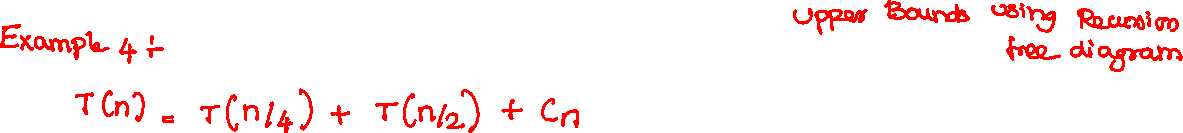 Upper Bounds using Recursion
Tree diagram
Example 4 :-
T(n) = T(n/4) + T(n/2) + Cn